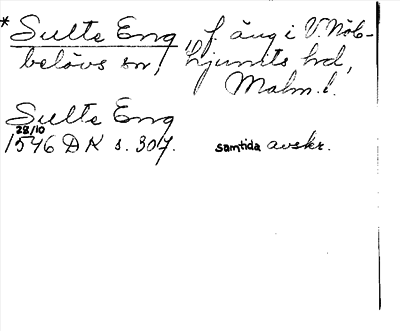 *Sulte Eng, f. äng i V. Nöb-
belövs sn, Ljunits hd,
Malm. l.
Sulte Eng
28/10
1546 DK s. 307. samtida avskr.